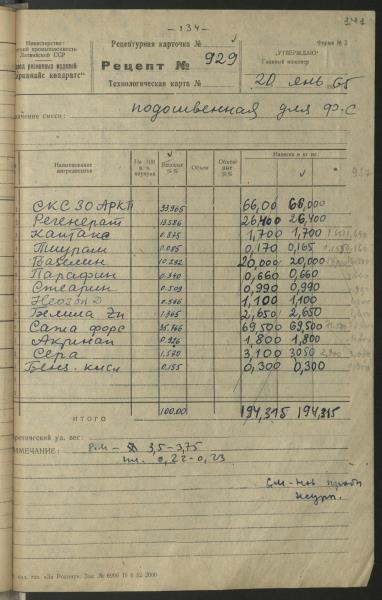 — 134 —
141
Министерство
Латвийской ССР
завод резиновых изделий
"Варианайс квадратс"
Рецептурная карточка №
Рецепт № 929
Технологическая карта №
Форма № 3
„УТВЕРЖДАЮ“
Главный инженер
20 янв 65
смеси: подошвенная для Ф-С
Наименование ингредиентов
На 100 в. ч. каучука
Весовые % %
Объем
Объемн. % %
Навеска в кг на:
СКС 30 АРКП 33.965 66,00 66,000
Регенерат 13.586 26,400 26,400
Каптакс 0.875 1,700 1,700
Тиурам 0.085 0,170 0,165
Вазелин 10.292 20,000 20,000
Парафин 0.340 0,660 0,660
Стеарин 0.509 0,990 0,990
Неозон Д 0.566 1,100 1,100
Белила Zn 1.365 2,650 2,650
Сажа форс 35.766 69,500 69,500
Акринап 0.926 1,800 1,800
Сера 1.570 3,100 3050
Бенз. кисл 0.155 0,300 0,300
ИТОГО 100.00 194,315 194,315
уд. вес:
ПРИМЕЧАНИЕ: Р.М – 3,5-3,75
пл. 0,22-0,23
„За Родину“. Зак. № 6906 19 6 52 2000